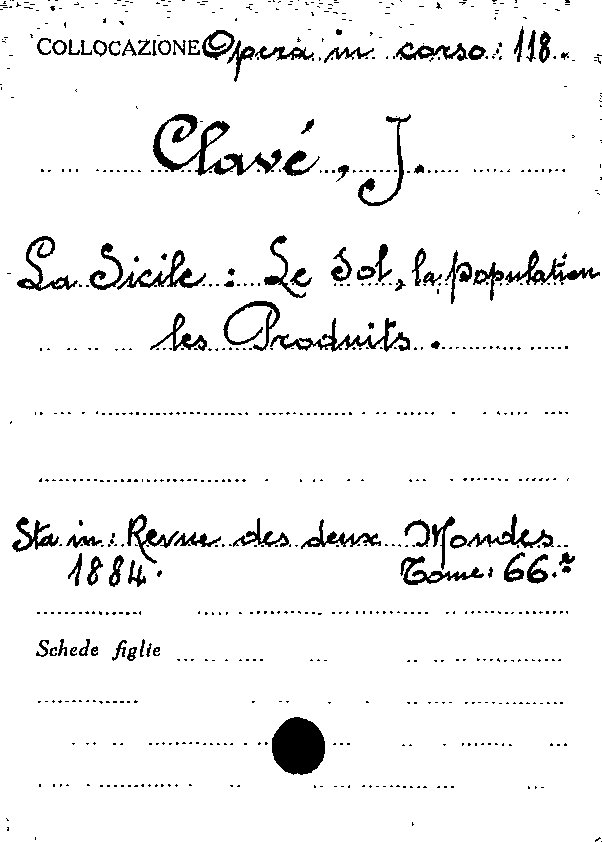 COLLOCAZIONE Opera in corso: 118.
Clavé, J.
La Sicile : Le Sol, la population
les Produits.
Sta in: Revue des deux Mondes
1884. Tome: 66.e
Schede figlie